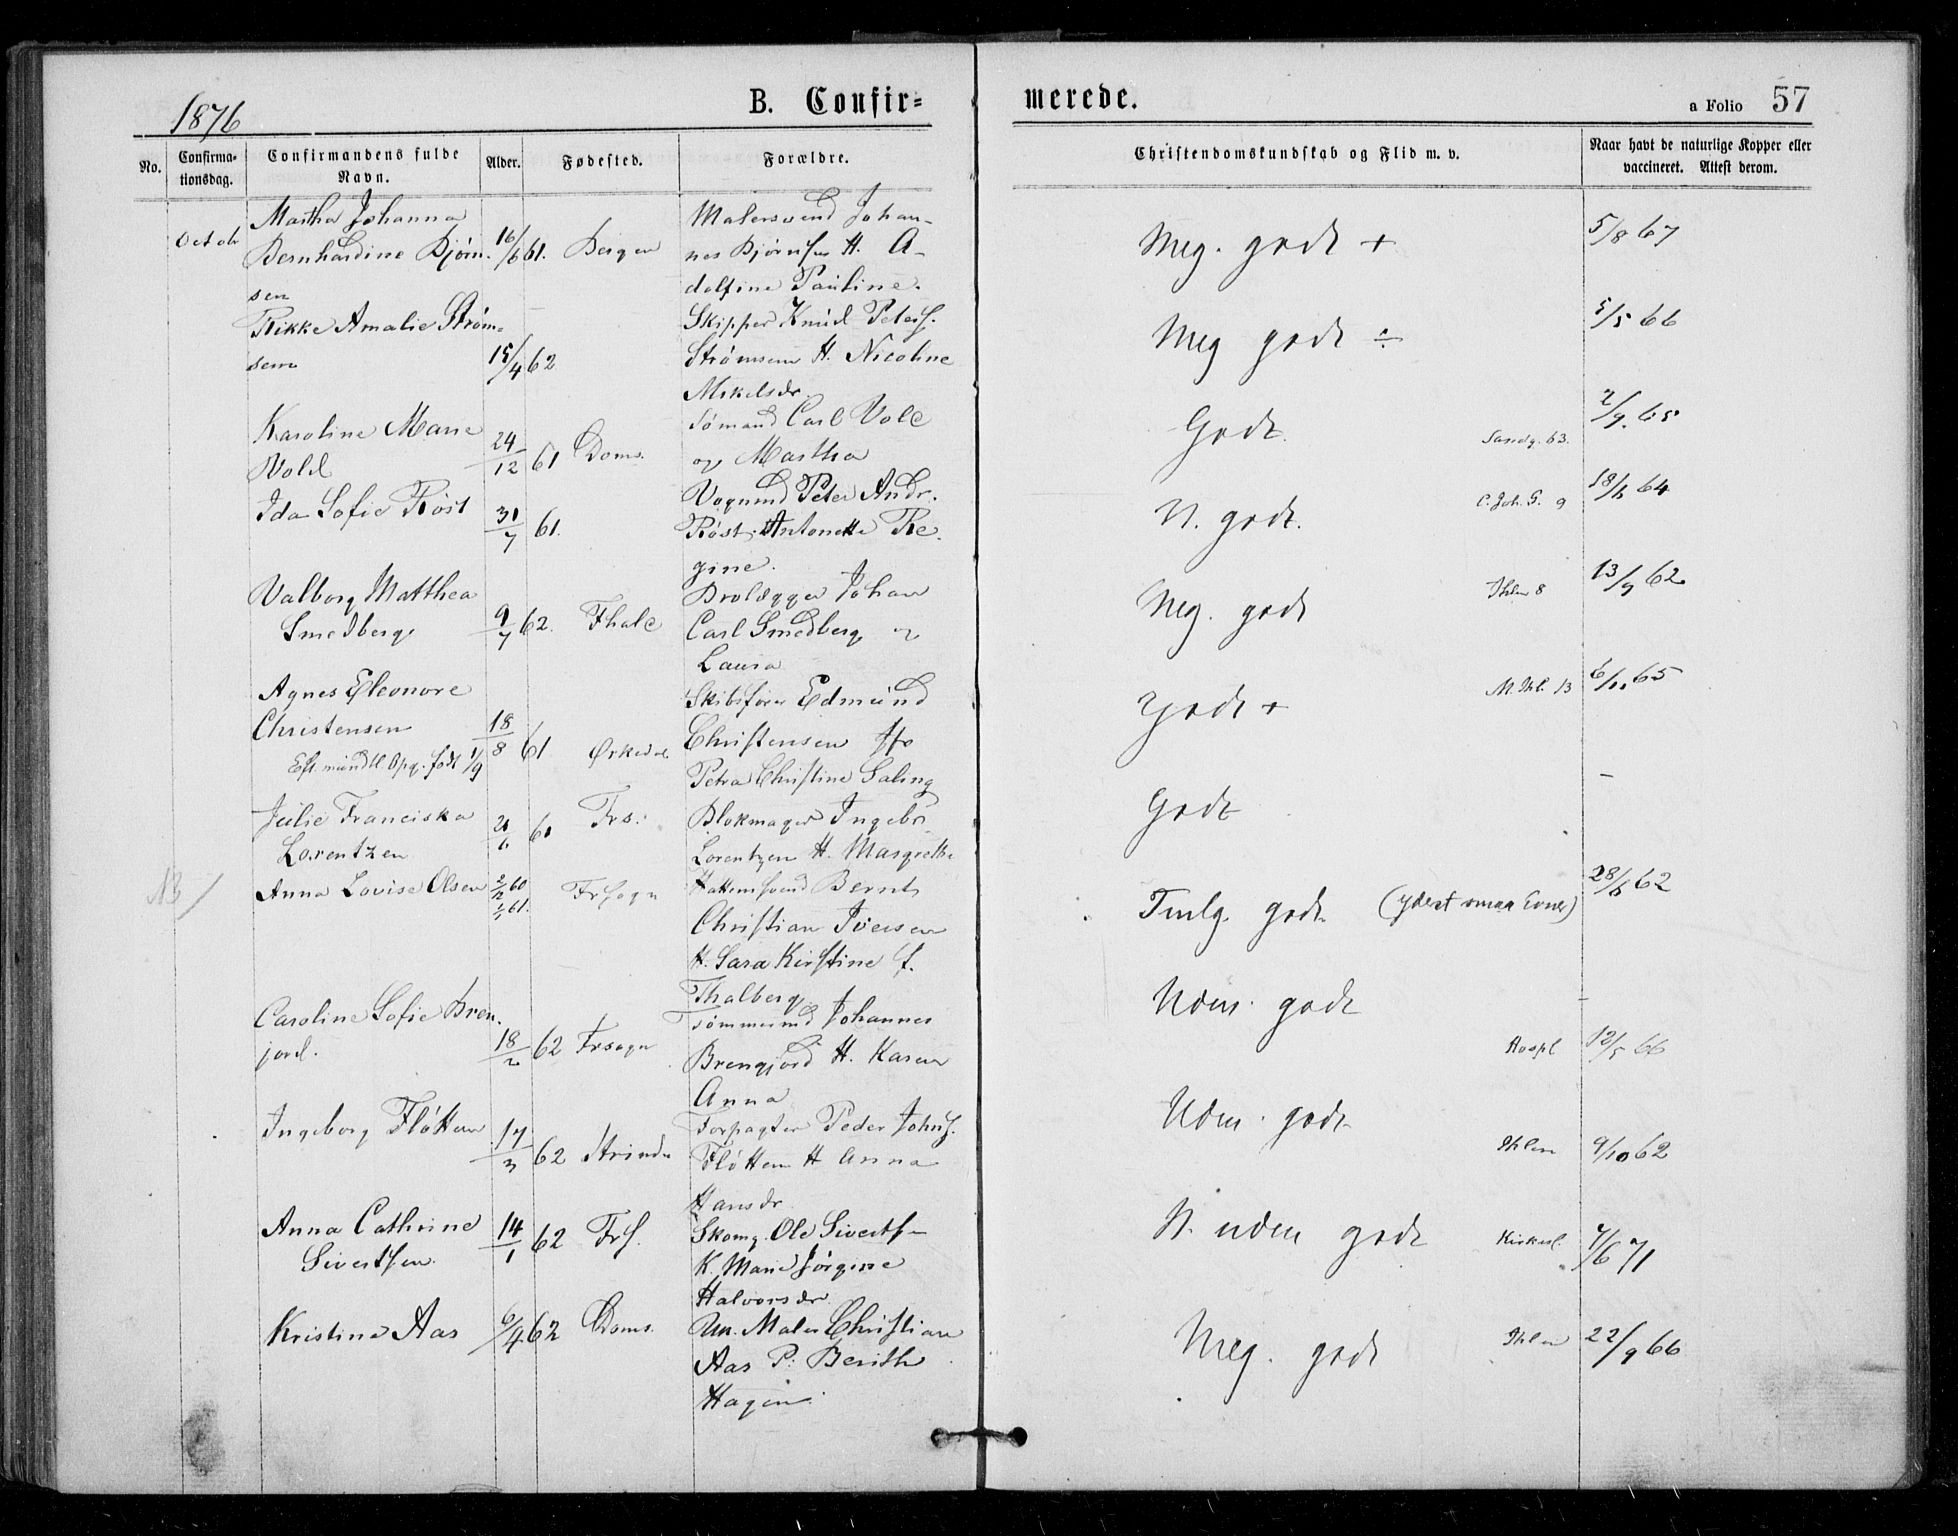 1876
B. Confir=
merede.
a Folio 57
No.
Confirma-
tionsdag.
Confirmandens fulde
Navn.
Alder.
Fødested.
Forældre.
Christendomskundskab og Flid m. v.
Naar havt de naturlige Kopper eller
vaccineret. Attest derom.
Octobr
Martha Johanna
Bernhardine Bjørn-
sen
16/6 61.
Bergen
Malersvend Johan-
nes Bjørnsen H. A-
dolfine Pauline.
Meg. godt +
5/8 67
Rikke Amalie Strøm=
sem
15/4 62
Skipper Knud Peters.
Strømsem H. Nicoline
Mikelsdr.
Meg godt ÷
5/5 66
Karoline Marie
Vold
24/12 61
Doms.
Sømand Carl Vold
og Martha
Godt.
Sandg. 63.
2/9. 65
Ida Sofie Røst
31/7 61.
Vognmd Peter Andr.
Røst. Antonette Re-
gine.
N. godt.
C. Joh. G. 9
18/6 64
Valborg Matthea
Smedberg
9/7 62.
Fhald
Brolægger Johan
Carl Smedberg og
Laura
Meg. godt
Ihlen 8
13/9 62
Agnes Eleonore
Christensen
Eft. mündtl. Opg. født 1/9
18/8 61
Ørkedal
Skibsfører Edmund
Christensen
Petra Christine Saling
Godt +
M. Ihl. 13
6/10 65
Julie Franciska
Lorentzen
21/6 61
Frs.
Blokmager Ingebr.
Lorentzen H. Margrethe
Godt
-
NB /
Anna Lovise Olsen
2/12 60
1/1 61.
FrSogn
Hattemsvend Bernt
Christian Iversen
H. Sara Kirstine f.
Thalberg
Tmlg. godt (yderst smaa Evner)
28/6 62
Caroline Sofie Bren-
jord.
18/2 62
Frsogn
Tømmermd Johannes
Brengjord H. Karen
Anna
Udm. godt
-
Hospl
12/5 66
Ingeborg Fløttum
17/3 62
Strinda
Forpagter Peder Johns.
Fløttum H Anna
Hansdr
Udm. godt
Ihlen
9/10 62
Anna Cathrine
Sivertsen
14/1 62
FrS.
Skomg. Ole Sivertsen
K. Marie Jørgine
Halvorsdr
N. uden godt
Kirkesl.
7/6 71
Kristine Aas
6/4 62
Doms.
Um. Maler Christian
Aas P: Berith
Hagen.
Meg. godt
Ihlen
22/9 66